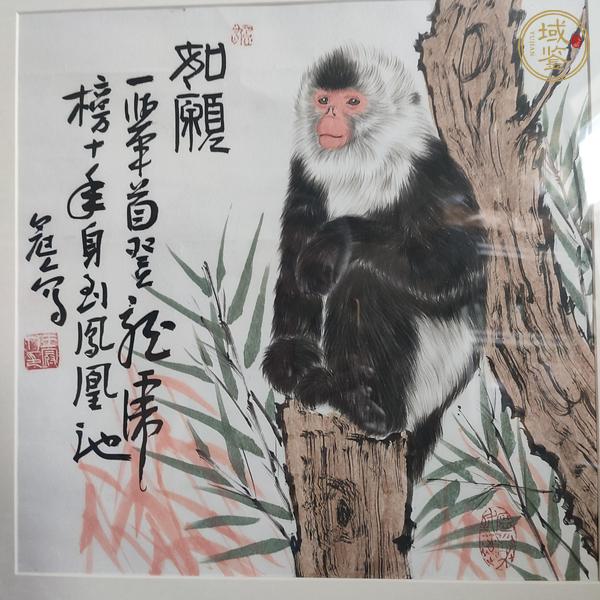 如願
一舉首登龍虎
榜十年身到鳳凰池
寫
域鉴
YUJIAN